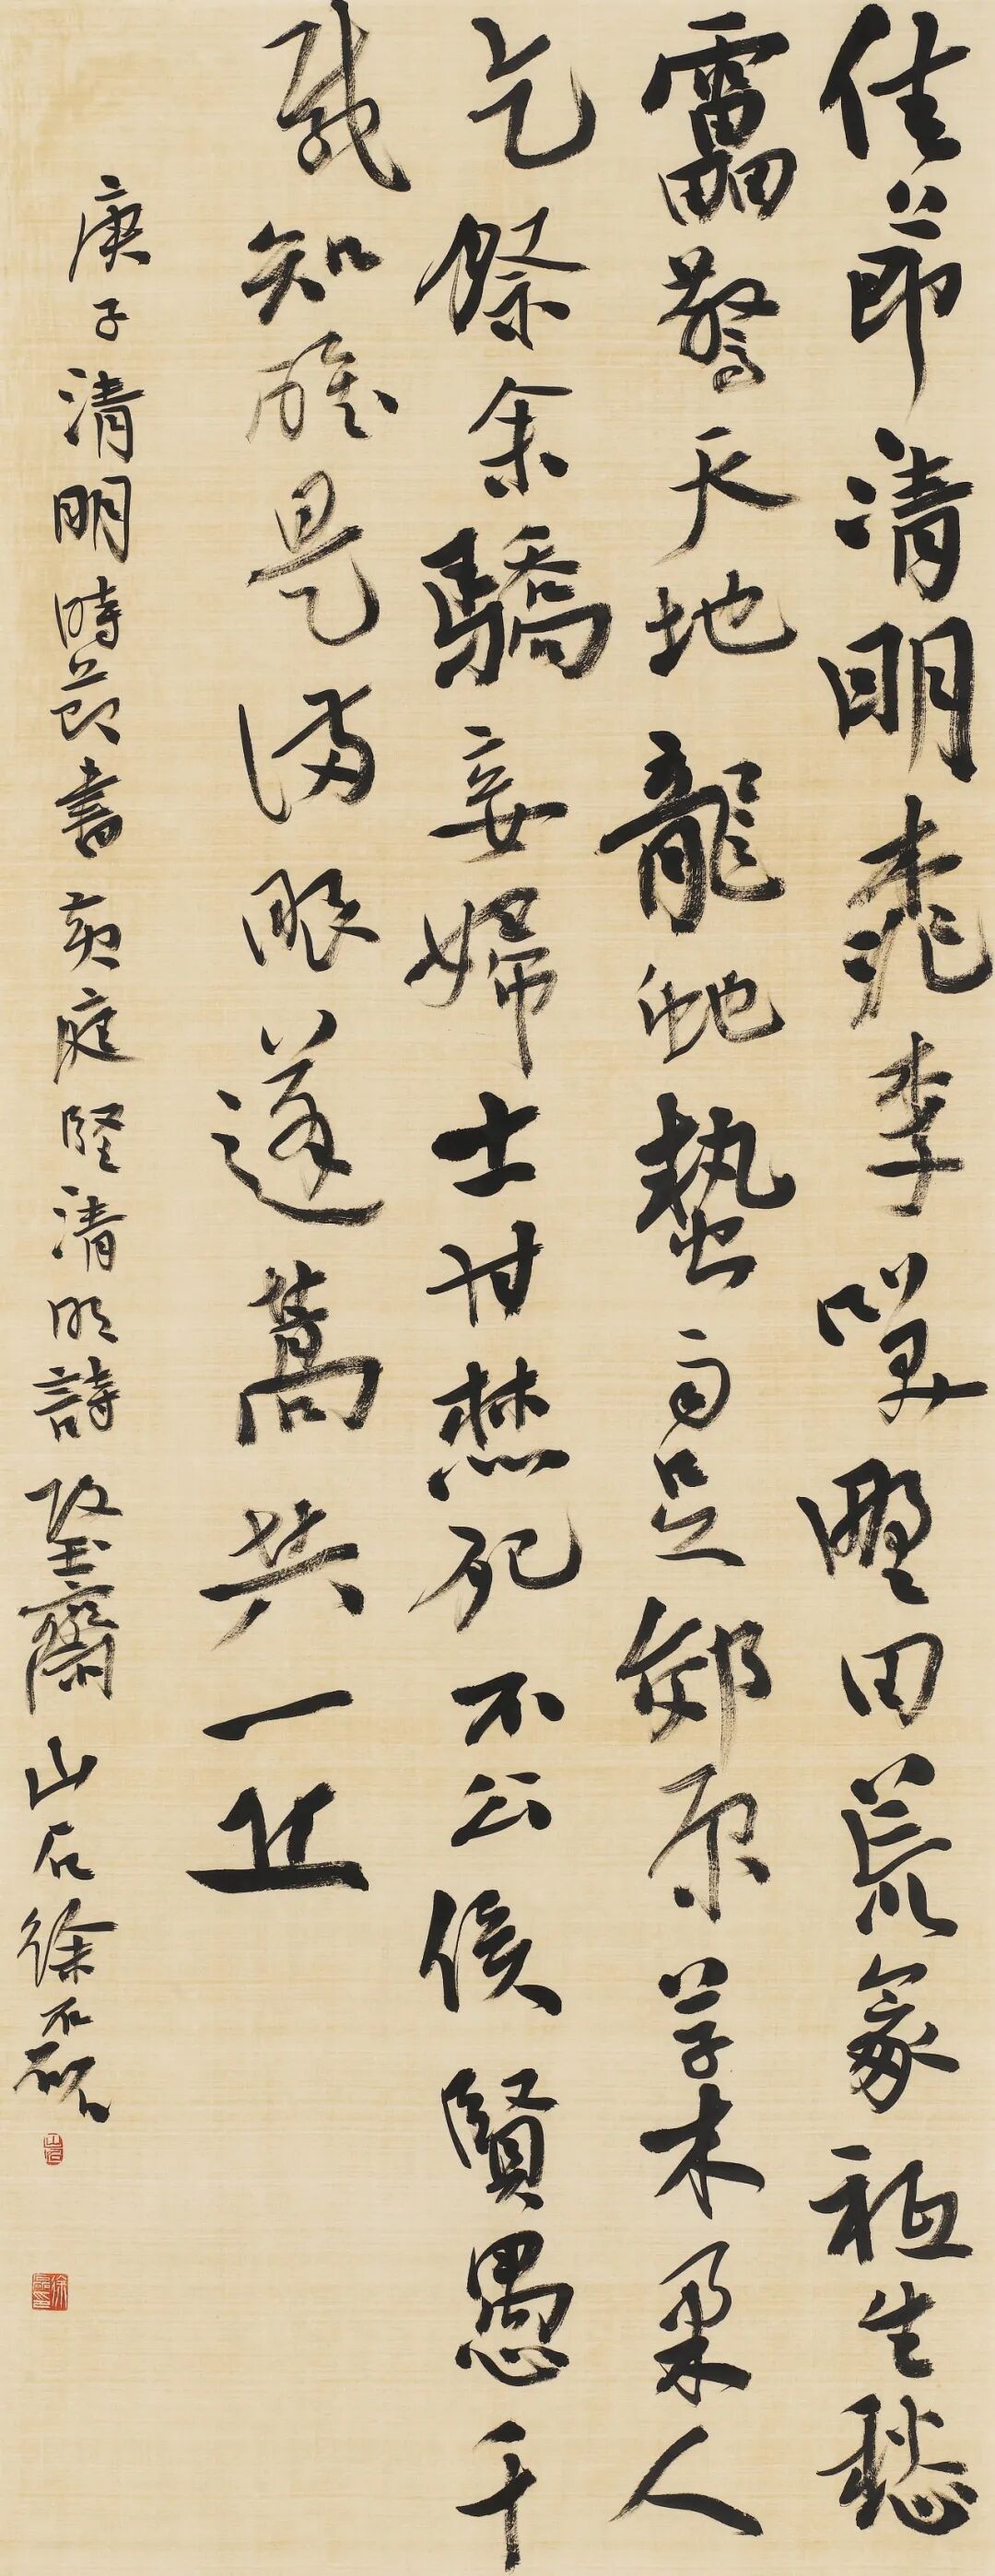 佳節清明桃李咲野田荒冢祗生愁
靁驚天地龍虵蟄雨足郊原草木柔人
乞祭余驕妾婦士甘焚死不公侯賢愚千
載知誰是滿眼蓬蒿共一丘
庚子清明時節書黃庭堅清明詩攻玉齋山石徐磊
山石
徐磊印